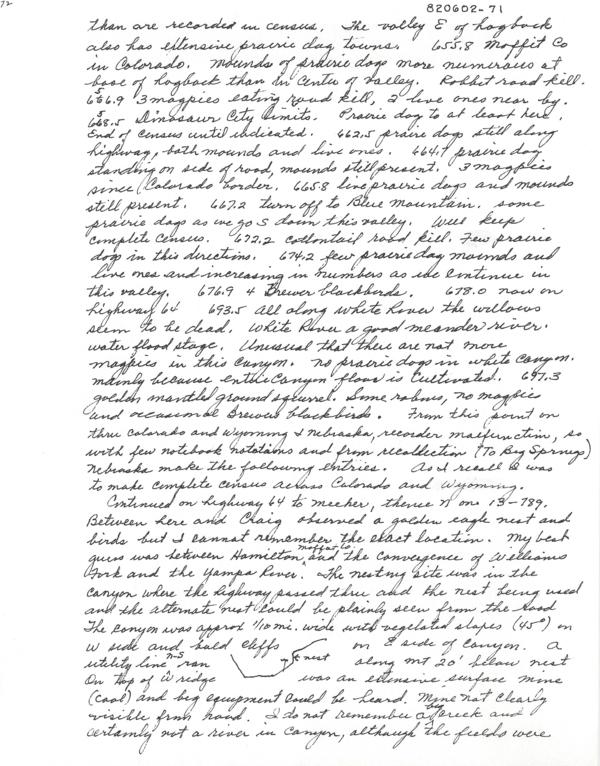 72
820602-71
than are recorded in census. The valley E of hogback
also has extensive prairie dog towns. 655.8 Moffit Co
in Colorado. Mounds of prairie dogs more numerous at
base of hogback than in Center of valley. Rabbit road kill.
656.9 3 magpies eating road kill, 2 live ones near by.
658.5 Dinosaur City limits. Prairie dog to at least here.
End of census until indicated. 662.5 prairie dogs still along
highway, both mounds and live ones. 664.7 prairie dog
standing on side of road, mounds still present. 3 magpies
since Colorado border. 665.8 live prairie dogs and mounds
still present. 667.2 turn off to Blue Mountain. some
prairie dogs as we go S down this valley. Will keep
complete census. 672.2 cottontail road kill. Few prairie
dog in this direction. 674.2 few prairie dog mounds and
live ones and increasing in numbers as we continue in
this valley. 676.9 4 Brewer blackbirds. 678.0 now on
highway 64 693.5 all along White River the willows
seem to be dead. White River a good meander river.
water flood stage. Unusual that there are not more
magpies in this canyon. No prairie dogs in white canyon.
mainly because entire canyon floor is cultivated. 697.3
golden mantled ground squirrel. Some robins, no magpies
and occasional Brewers blackbirds. From this point on
thru Colorado and Wyoming & Nebraska, recorder malfunction, so
with few notebook notations and from recollection (To Big Springs)
Nebraska make the following entries. As I recall I was
to make complete census across Colorado and Wyoming.
Continued on highway 64 to Meeker, thence N on 13-789.
Between here and Craig observed a golden eagle nest and
birds but I cannot remember the exact location. My best
guess was between Hamilton, Moffat Co. and the convergence of Williams
Fork and the Yampa River. The nesting site was in the
canyon where the highway passed thru and the nest being used
and the alternate nest could be plainly seen from the road
The canyon was approx 1/10 mi. wide with vegetated slopes (45°) on
W side and bald cliffs on E side of canyon. A
utility line n-s ran nest along mt 20' below nest
On top of W ridge was an extensive surface mine
(coal) and big equipment could be heard. Mine not clearly
visible from road. I do not remember a big creek and
certainly not a river in canyon, although the fields were